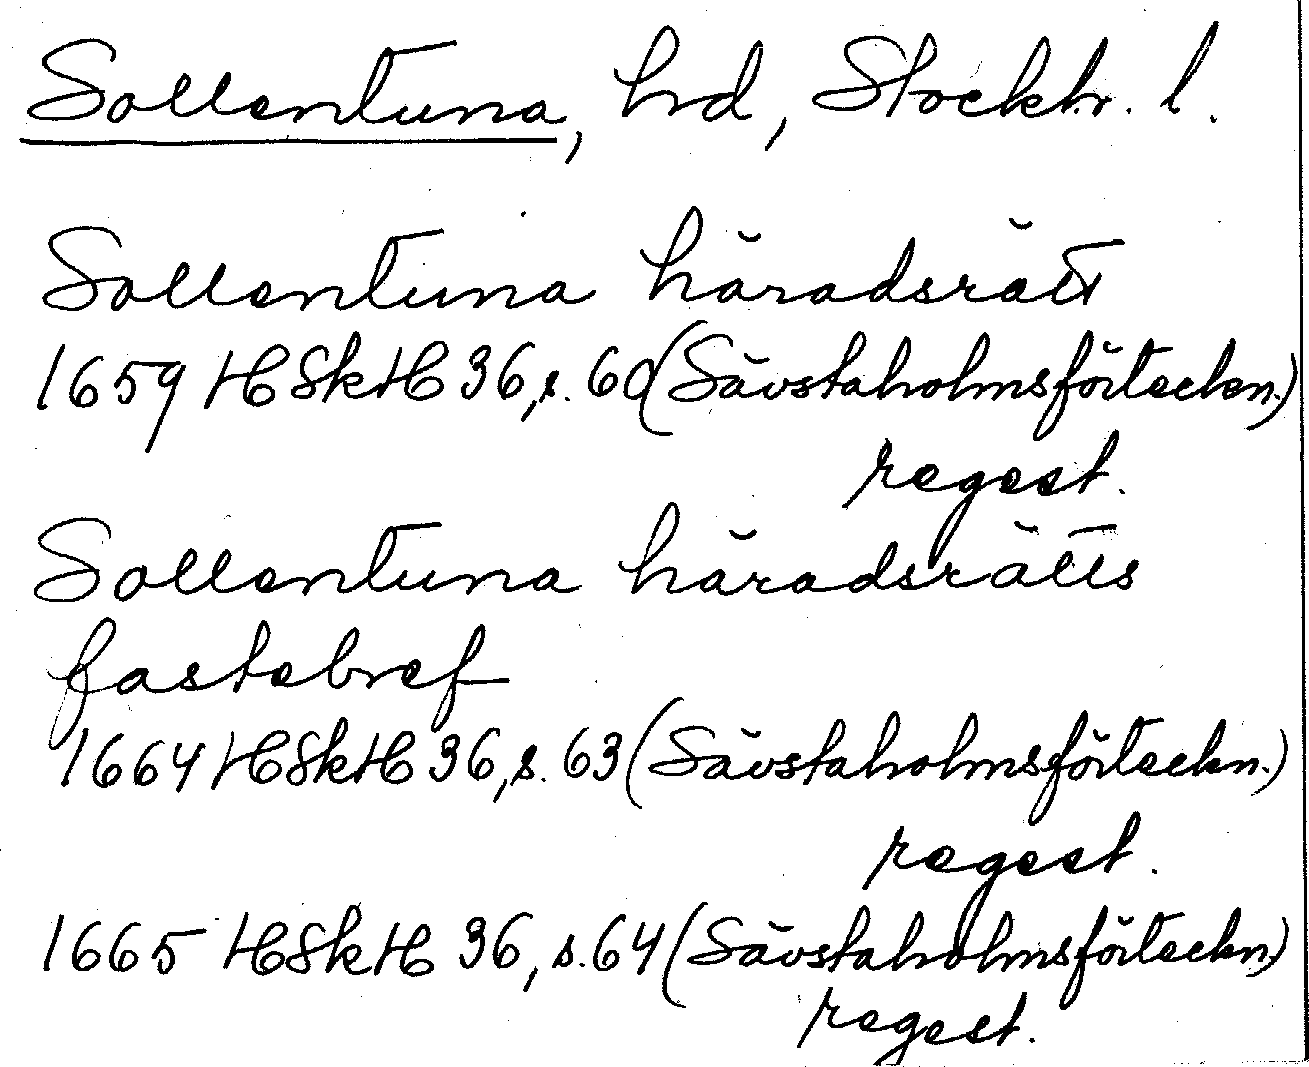 Sollentuna, hd, Stockh. l.
Sollentuna häradsrätt
1659 HSkH 36, s. 60 (Sävstaholmsförteckn.)
regest.
Sollentuna häradsrätts
fastebref
1664 HSkH 36, s. 63 (Sävstaholmsförteckn.)
regest.
1665 HSkH 36, s. 64 (Sävstaholmsförteckn.)
regest.